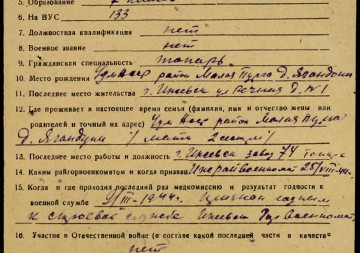 5. Образование 7 классов
6. На ВУС 133
7. Должностная квалификация нет
8. Военное звание нет
9. Гражданская специальность токарь.
10. Место рождения Удм АССР район Малая Пурга д.
11. Последнее место жительства г. Ижевск ул Речная д. №1
12. Где проживает в настоящее время семья (фамилия, имя и отчество жены или
родителей и точный их адрес) Удм АССР район Малая Пурга
д. / мать
13. Последнее место работы и должность г. Ижевск завод 74 токарь
14. Каким райгорвоенкоматом и когда призван 25/VIII-44 г.
15. Когда и где проходил последний раз медкомиссию и результат годности к
военной службе VIII-1944 г. Признан годным
к строевой службе Ижевским Горвоенкомат.
16. Участие в Отечественной войне (в составе какой последней части и в качестве
нет